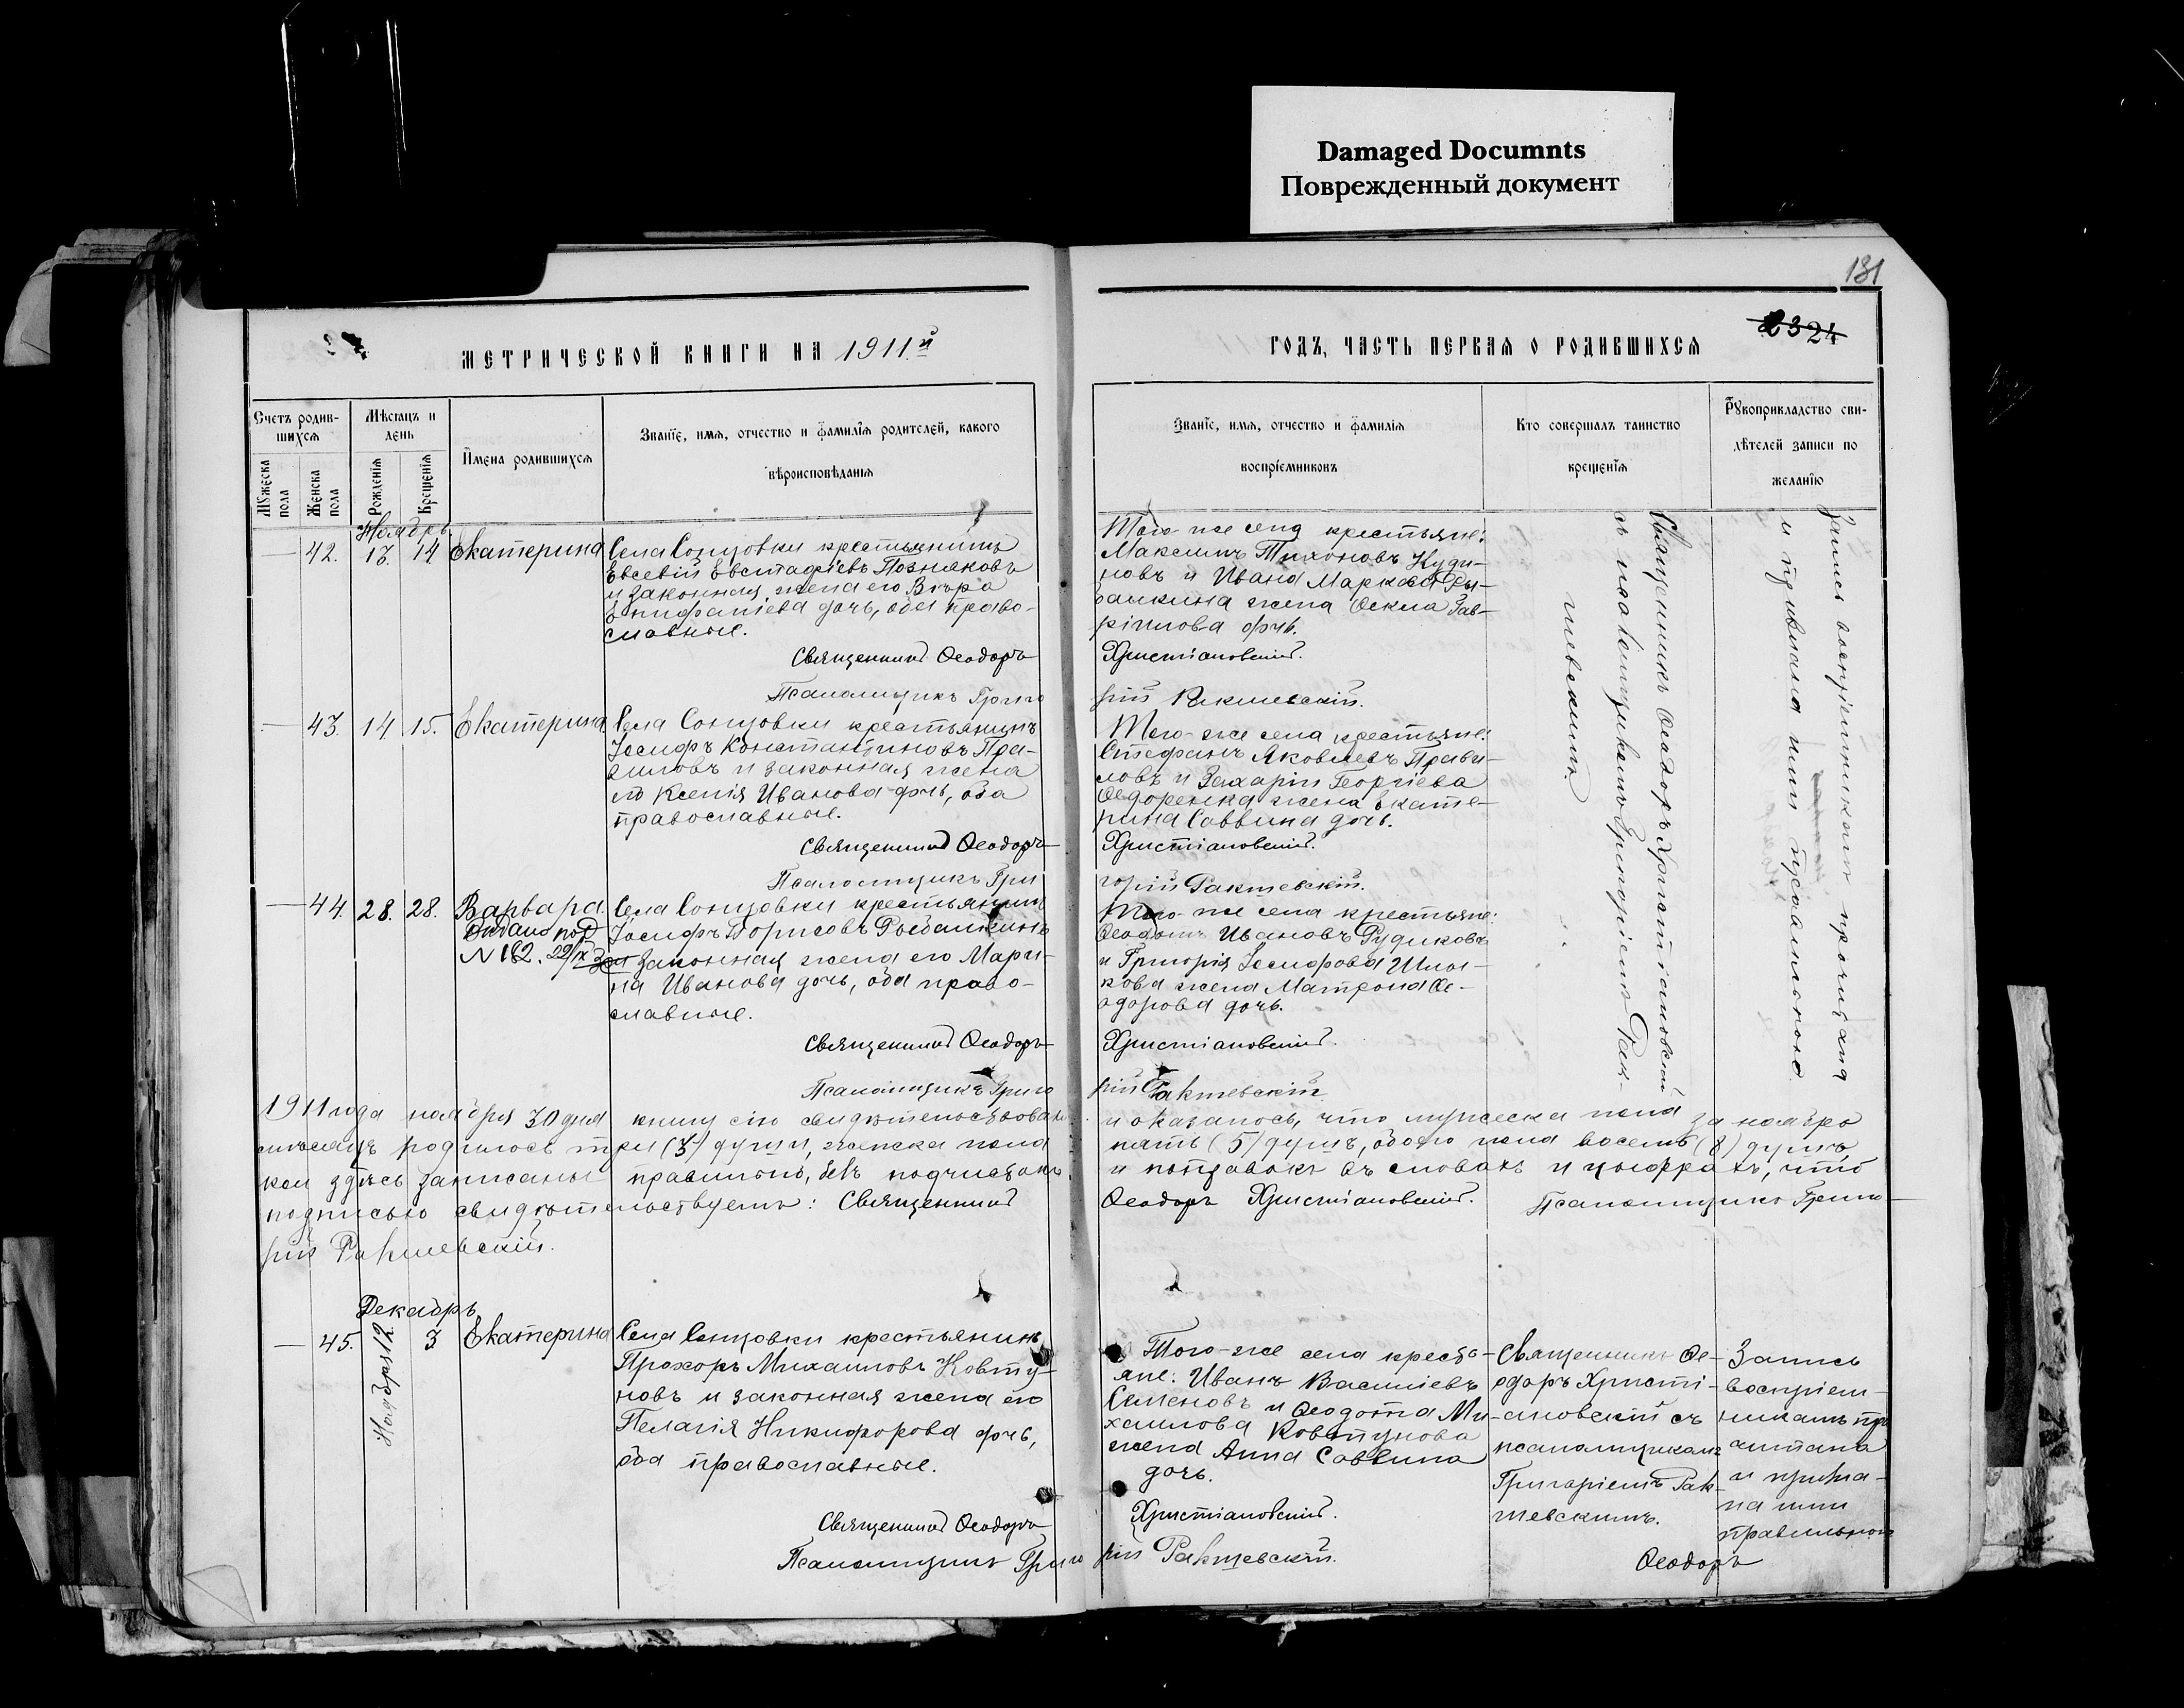 Damaged Documnts
Поврежденный документ
131
23 24
МЕТРИЧЕСКОЙ КНИГИ НА 1911.й
ГОДЪ, ЧАСТЬ ПЕРВАЯ О РОДИВШИХСЯ
Счетъ родив-
шихся
Мужеска пола
Женска пола
Мѣсяцъ и
день
Рожденія
Крещенія
Имена родившихся
Званіе, имя, отчество и фамилія родителей, какого
вѣроисповѣданія
Званіе, имя, отчество и фамилія
воспріемниковъ
Кто совершалъ таинство
крещенія
Рукоприкладство сви-
дѣтелей записи по
желанію
Ноябрь
— 42. 13. 14 Екатерина
Села Сонцовки крестьянинъ
Евсевій Евстафіевъ Позняковъ
и законная жена его Вѣра
Епифаніева дочь, оба право-
славные.
Священникъ Ѳеодоръ
Псаломщикъ Григо
Того-же села крестьяне:
Максимъ Тихоновъ Куди-
новъ и Ивана Маркова Ры-
балкина жена Ѳекла Гав-
ріилова дочь.
Христіановскій.
рій Ракшевскій.
— 43. 14. 15. Екатерина
Села Сонцовки крестьянинъ
Іосифъ Константиновъ Пра-
виловъ и законная жена
его Ксенія Иванова дочь, оба
православные.
Священникъ Ѳеодоръ
Псаломщикъ Гри
Того-же села крестьяне:
Стефанъ Яковлевъ Прави-
ловъ и Захарія Георгіева
Ѳедоренка жена Екате-
рина Саввина дочь.
Христіановскій.
горій Ракшевскій.
— 44. 28. 28. Варвара
Выдано под
N 162. 22/IX
Села Сонцовки крестьянинъ
Іосифъ Борисовъ Рыбалкинъ
и законная жена его Мари-
на Иванова дочь, оба право-
славные.
Священникъ Ѳеодоръ
Псаломщикъ Григо
Того-же села крестьяне:
Ѳеодотъ Ивановъ Рудиковъ
и Григорія Іосифова
кова жена Матрона Ѳе-
одорова дочь.
Христіановскій.
рій Ракшевскій.
Священникъ Ѳеодоръ Христіановскій
съ псаломщикомъ Григоріемъ Рак-
шевскимъ.
Запись воспріемникамъ прочитана
и признана ими правильною
1911 года ноября 30 дня книгу сію свидѣтельствовали и оказалось, что мужеска пола за ноябрь
мѣсяцъ родилось три (3) души, женска пола пять (5) душъ, обоего пола восемь (8) душъ,
кои здѣсь записаны правильно, безъ подчистокъ и поправокъ въ словахъ и цыфрахъ, что
подписью свидѣтельствуемъ: Священникъ Ѳеодоръ Христіановскій. Псаломщикъ Григо-
рій Ракшевскій.
Декабрь
— 45. Ноября 12. 3 Екатерина
Села Сонцовки крестьянинъ
Прохоръ Михаиловъ Ковту-
новъ и законная жена его
Пелагія Никифорова дочь,
оба православные.
Священникъ Ѳеодоръ
Псаломщикъ Григо
Того-же села кресть-
яне: Иванъ Василіевъ
Семеновъ и Ѳеодота Ми-
хаилова Ковтунова
жена Анна Саввина
дочь.
Христіановскій.
рій Ракшевскій.
Священникъ Ѳе-
одоръ Христі-
ановскій съ
псаломщикомъ
Григоріемъ Рак-
шевскимъ.
Запись
воспріем-
никамъ про
читана
и призна-
на ими
правильною
Ѳеодоръ